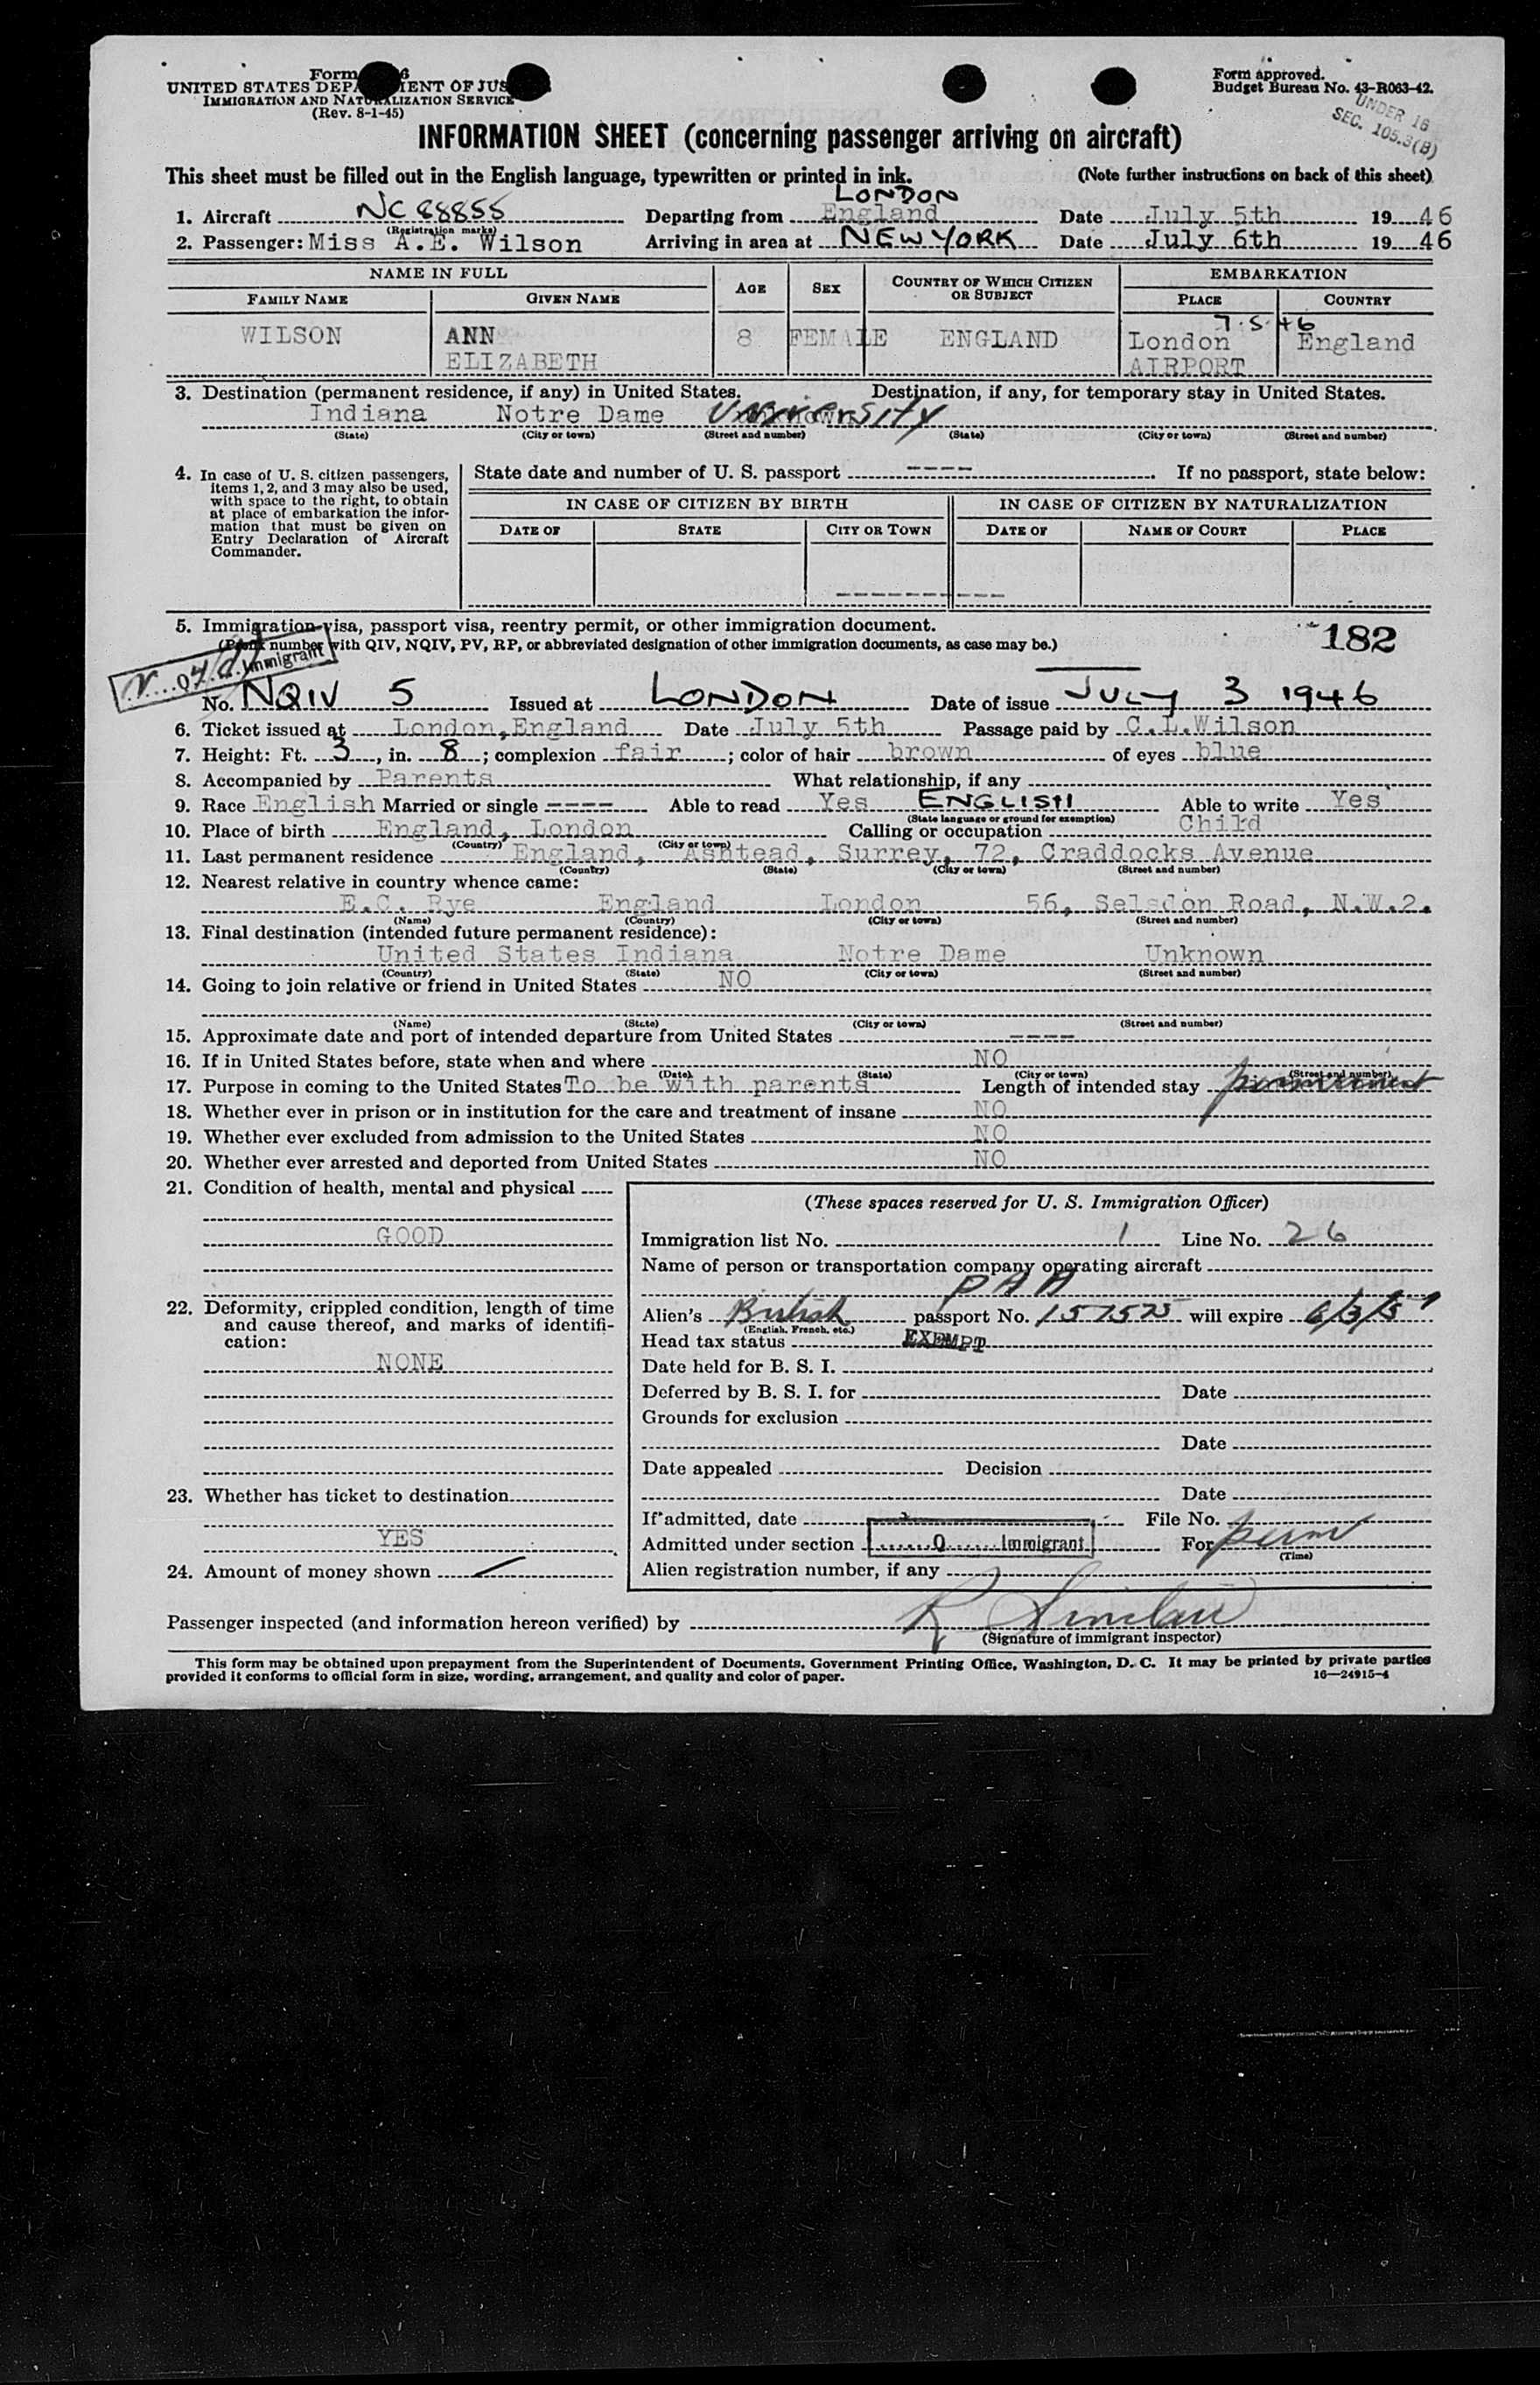 Form
UNITED STATES DEPARTMENT OF JUSTICE
IMMIGRATION AND NATURALIZATION SERVICE
(Rev. 8-1-45)
Form approved.
Budget Bureau No. 43-R063-42.
UNDER 16
SEC. 105.3(B)
INFORMATION SHEET (concerning passenger arriving on aircraft)
This sheet must be filled out in the English language, typewritten or printed in ink. (Note further instructions on back of this sheet)
LONDON
1. Aircraft NC 88855 Departing from England Date July 5th 19 46
(Registration marks)
2. Passenger: Miss A.E. Wilson Arriving in area at NEW YORK Date July 6th 19 46
NAME IN FULL AGE SEX COUNTRY OF WHICH CITIZEN OR SUBJECT EMBARKATION
FAMILY NAME GIVEN NAME PLACE COUNTRY
7.5.46
WILSON ANN 8 FEMALE ENGLAND London England
ELIZABETH AIRPORT
3. Destination (permanent residence, if any) in United States. Destination, if any, for temporary stay in United States.
Indiana Notre Dame University
(State) (City or town) (Street and number) (State) (City or town) (Street and number)
4. In case of U. S. citizen passengers, items 1, 2, and 3 may also be used, with space to the right, to obtain at place of embarkation the information that must be given on Entry Declaration of Aircraft Commander.
State date and number of U. S. passport ---- If no passport, state below:
IN CASE OF CITIZEN BY BIRTH IN CASE OF CITIZEN BY NATURALIZATION
DATE OF STATE CITY OR TOWN DATE OF NAME OF COURT PLACE
5. Immigration visa, passport visa, reentry permit, or other immigration document.
(Print number with QIV, NQIV, PV, RP, or abbreviated designation of other immigration documents, as case may be.)
182
Immigrant
No. NQIV 5 Issued at LONDON Date of issue JULY 3 1946
6. Ticket issued at London, England Date July 5th Passage paid by C.L.Wilson
7. Height: Ft. 3, in. 8; complexion fair; color of hair brown of eyes blue
8. Accompanied by Parents What relationship, if any
9. Race English Married or single ---- Able to read Yes ENGLISH Able to write Yes
(State language or ground for exemption)
10. Place of birth England, London Calling or occupation Child
(Country) (City or town)
11. Last permanent residence England, Ashtead, Surrey, 72, Craddocks Avenue
(Country) (State) (City or town) (Street and number)
12. Nearest relative in country whence came:
E.C. Rye England London 56, Selsdon Road, N.W.2.
(Name) (Country) (City or town) (Street and number)
13. Final destination (intended future permanent residence):
United States Indiana Notre Dame Unknown
(Country) (State) (City or town) (Street and number)
14. Going to join relative or friend in United States NO
(Name) (State) (City or town) (Street and number)
15. Approximate date and port of intended departure from United States ----
16. If in United States before, state when and where NO
(Date) (State) (City or town) (Street and number)
17. Purpose in coming to the United States To be with parents Length of intended stay permanent
18. Whether ever in prison or in institution for the care and treatment of insane NO
19. Whether ever excluded from admission to the United States NO
20. Whether ever arrested and deported from United States NO
21. Condition of health, mental and physical
GOOD
22. Deformity, crippled condition, length of time and cause thereof, and marks of identification:
NONE
23. Whether has ticket to destination
YES
24. Amount of money shown
(These spaces reserved for U. S. Immigration Officer)
Immigration list No. 1 Line No. 26
Name of person or transportation company operating aircraft
PAA
Alien's British passport No. 157525 will expire 6/3/51
(English, French, etc.)
Head tax status EXEMPT
Date held for B. S. I.
Deferred by B. S. I. for Date
Grounds for exclusion
Date
Date appealed Decision
Date
If admitted, date File No.
Admitted under section Q Immigrant For perm
(Time)
Alien registration number, if any
Passenger inspected (and information hereon verified) by R Sinclair
(Signature of immigrant inspector)
This form may be obtained upon prepayment from the Superintendent of Documents, Government Printing Office, Washington, D. C. It may be printed by private parties
provided it conforms to official form in size, wording, arrangement, and quality and color of paper. 16—24915-4